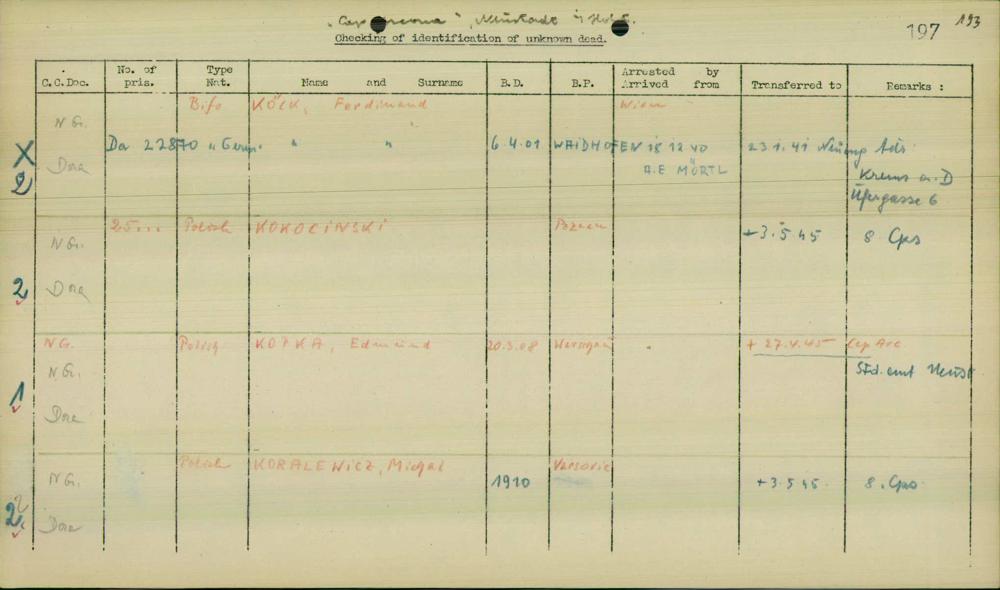 "Cap Arcona", Neustadt i/Holst.
Checking of identification of unknown dead.
197 193
C.C.Doc. No. of pris. Type Nat. Name and Surname B.D. B.P. Arrested by Arrived from Transferred to Remarks :
N G. Bifo KÖCK, Ferdinand Wien
X 2 Dora Da 22870 " Germ. " " 6.4.01 WAIDHOFEN 18 12 40 23 1.41 Neueng Adr.
A.E MÖRTL Krems a.D
6
N G. 25... Polish KOKOCINSKI Poznan +3.5.45 8. Cps
2 Dora
N G. Polish KOPKA, Edmund 20.3.08 Warschau + 27.4.45 Cap Arc.
N G. Std. amt Neust
1 Dora
N G. Polish KORALEWICZ, Michal 1910 Varsovie +3.5 45. 8. Cps
2 2 Dora